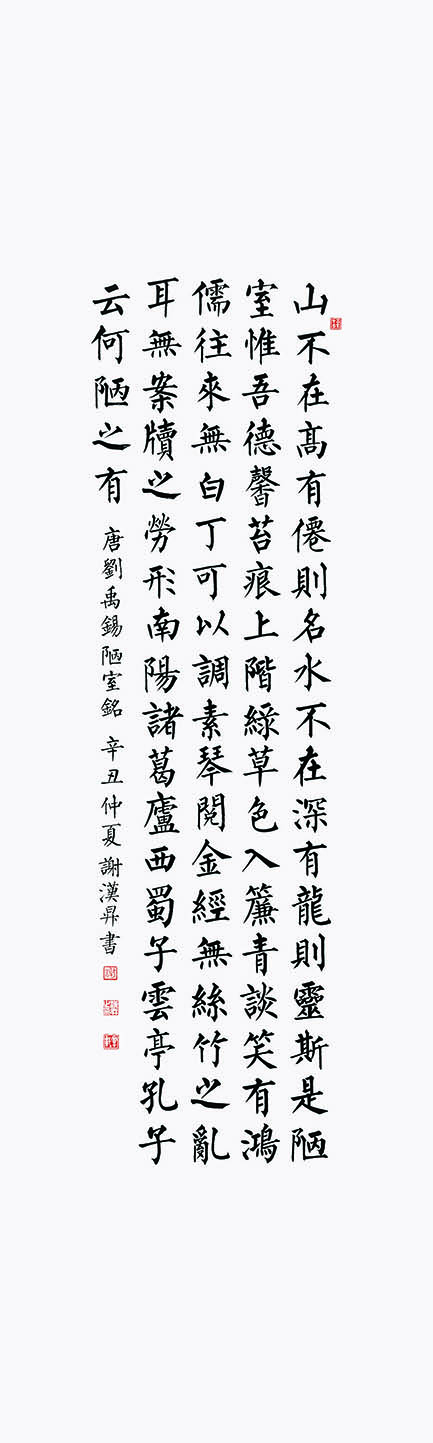 山不在髙有僊則名水不在深有龍則靈斯是陋
室惟吾德馨苔痕上階綠草色入簾青談笑有鴻
儒往來無白丁可以調素琴閱金經無絲竹之亂
耳無案牘之勞形南陽諸葛廬西蜀子雲亭孔子
云何陋之有 唐劉禹錫陋室銘 辛丑仲夏謝漢昇書